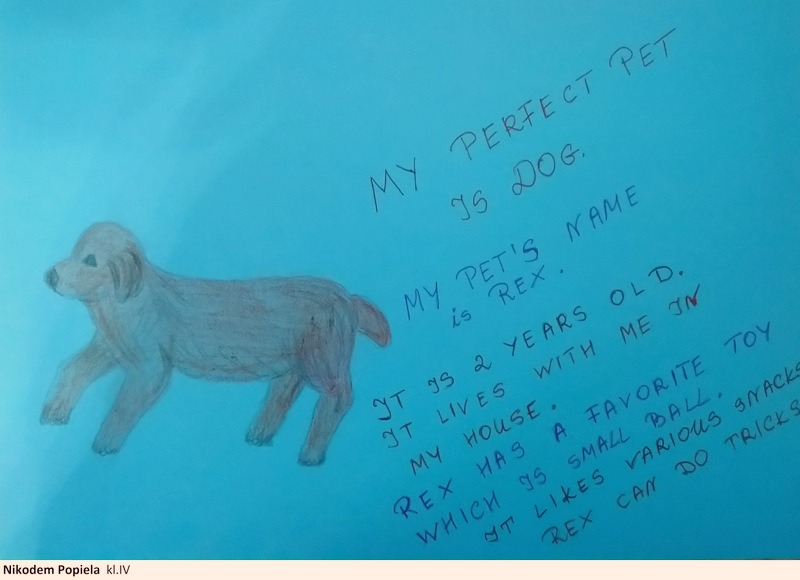 MY PERFECT PET
IS DOG.
MY PET'S NAME
is REX.
IT IS 2 YEARS OLD.
IT LIVES WITH ME IN
MY HOUSE.
REX HAS A FAVORITE TOY
WHICH IS SMALL BALL.
IT LIKES VARIOUS SNACKS
REX CAN DO TRICKS
Nikodem Popiela kl.IV